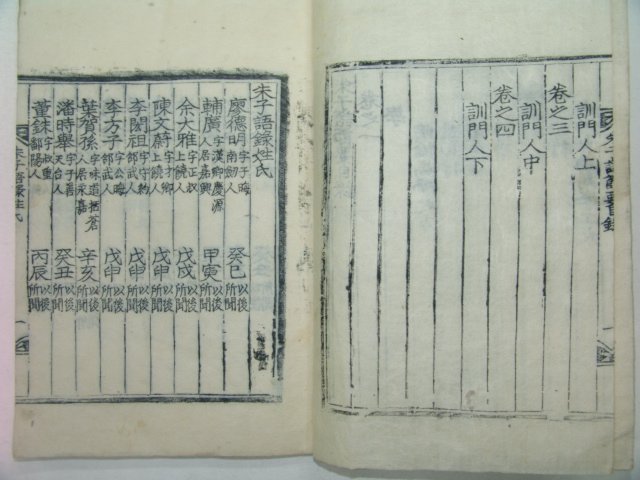 訓門人上
卷之三
訓門人中
卷之四
訓門人下
朱子語錄姓氏
廖德明 字子晦 南劒人 癸巳以後所聞
輔廣 字漢卿 慶源人 居嘉興 甲寅以後所聞
余大雅 字正叔 上饒人 戊戌以後所聞
陳文蔚 字才卿 上饒人 戊申以後所聞
李閎祖 字守約 邵武人 戊申以後所聞
李方子 字公晦 邵武人 戊申以後所聞
葉賀孫 字味道 括蒼人 居永嘉 辛亥以後所聞
潘時舉 字子善 天台人 癸丑以後所聞
董銖 字叔重 鄱陽人 丙辰以後所聞
朱子語錄姓氏